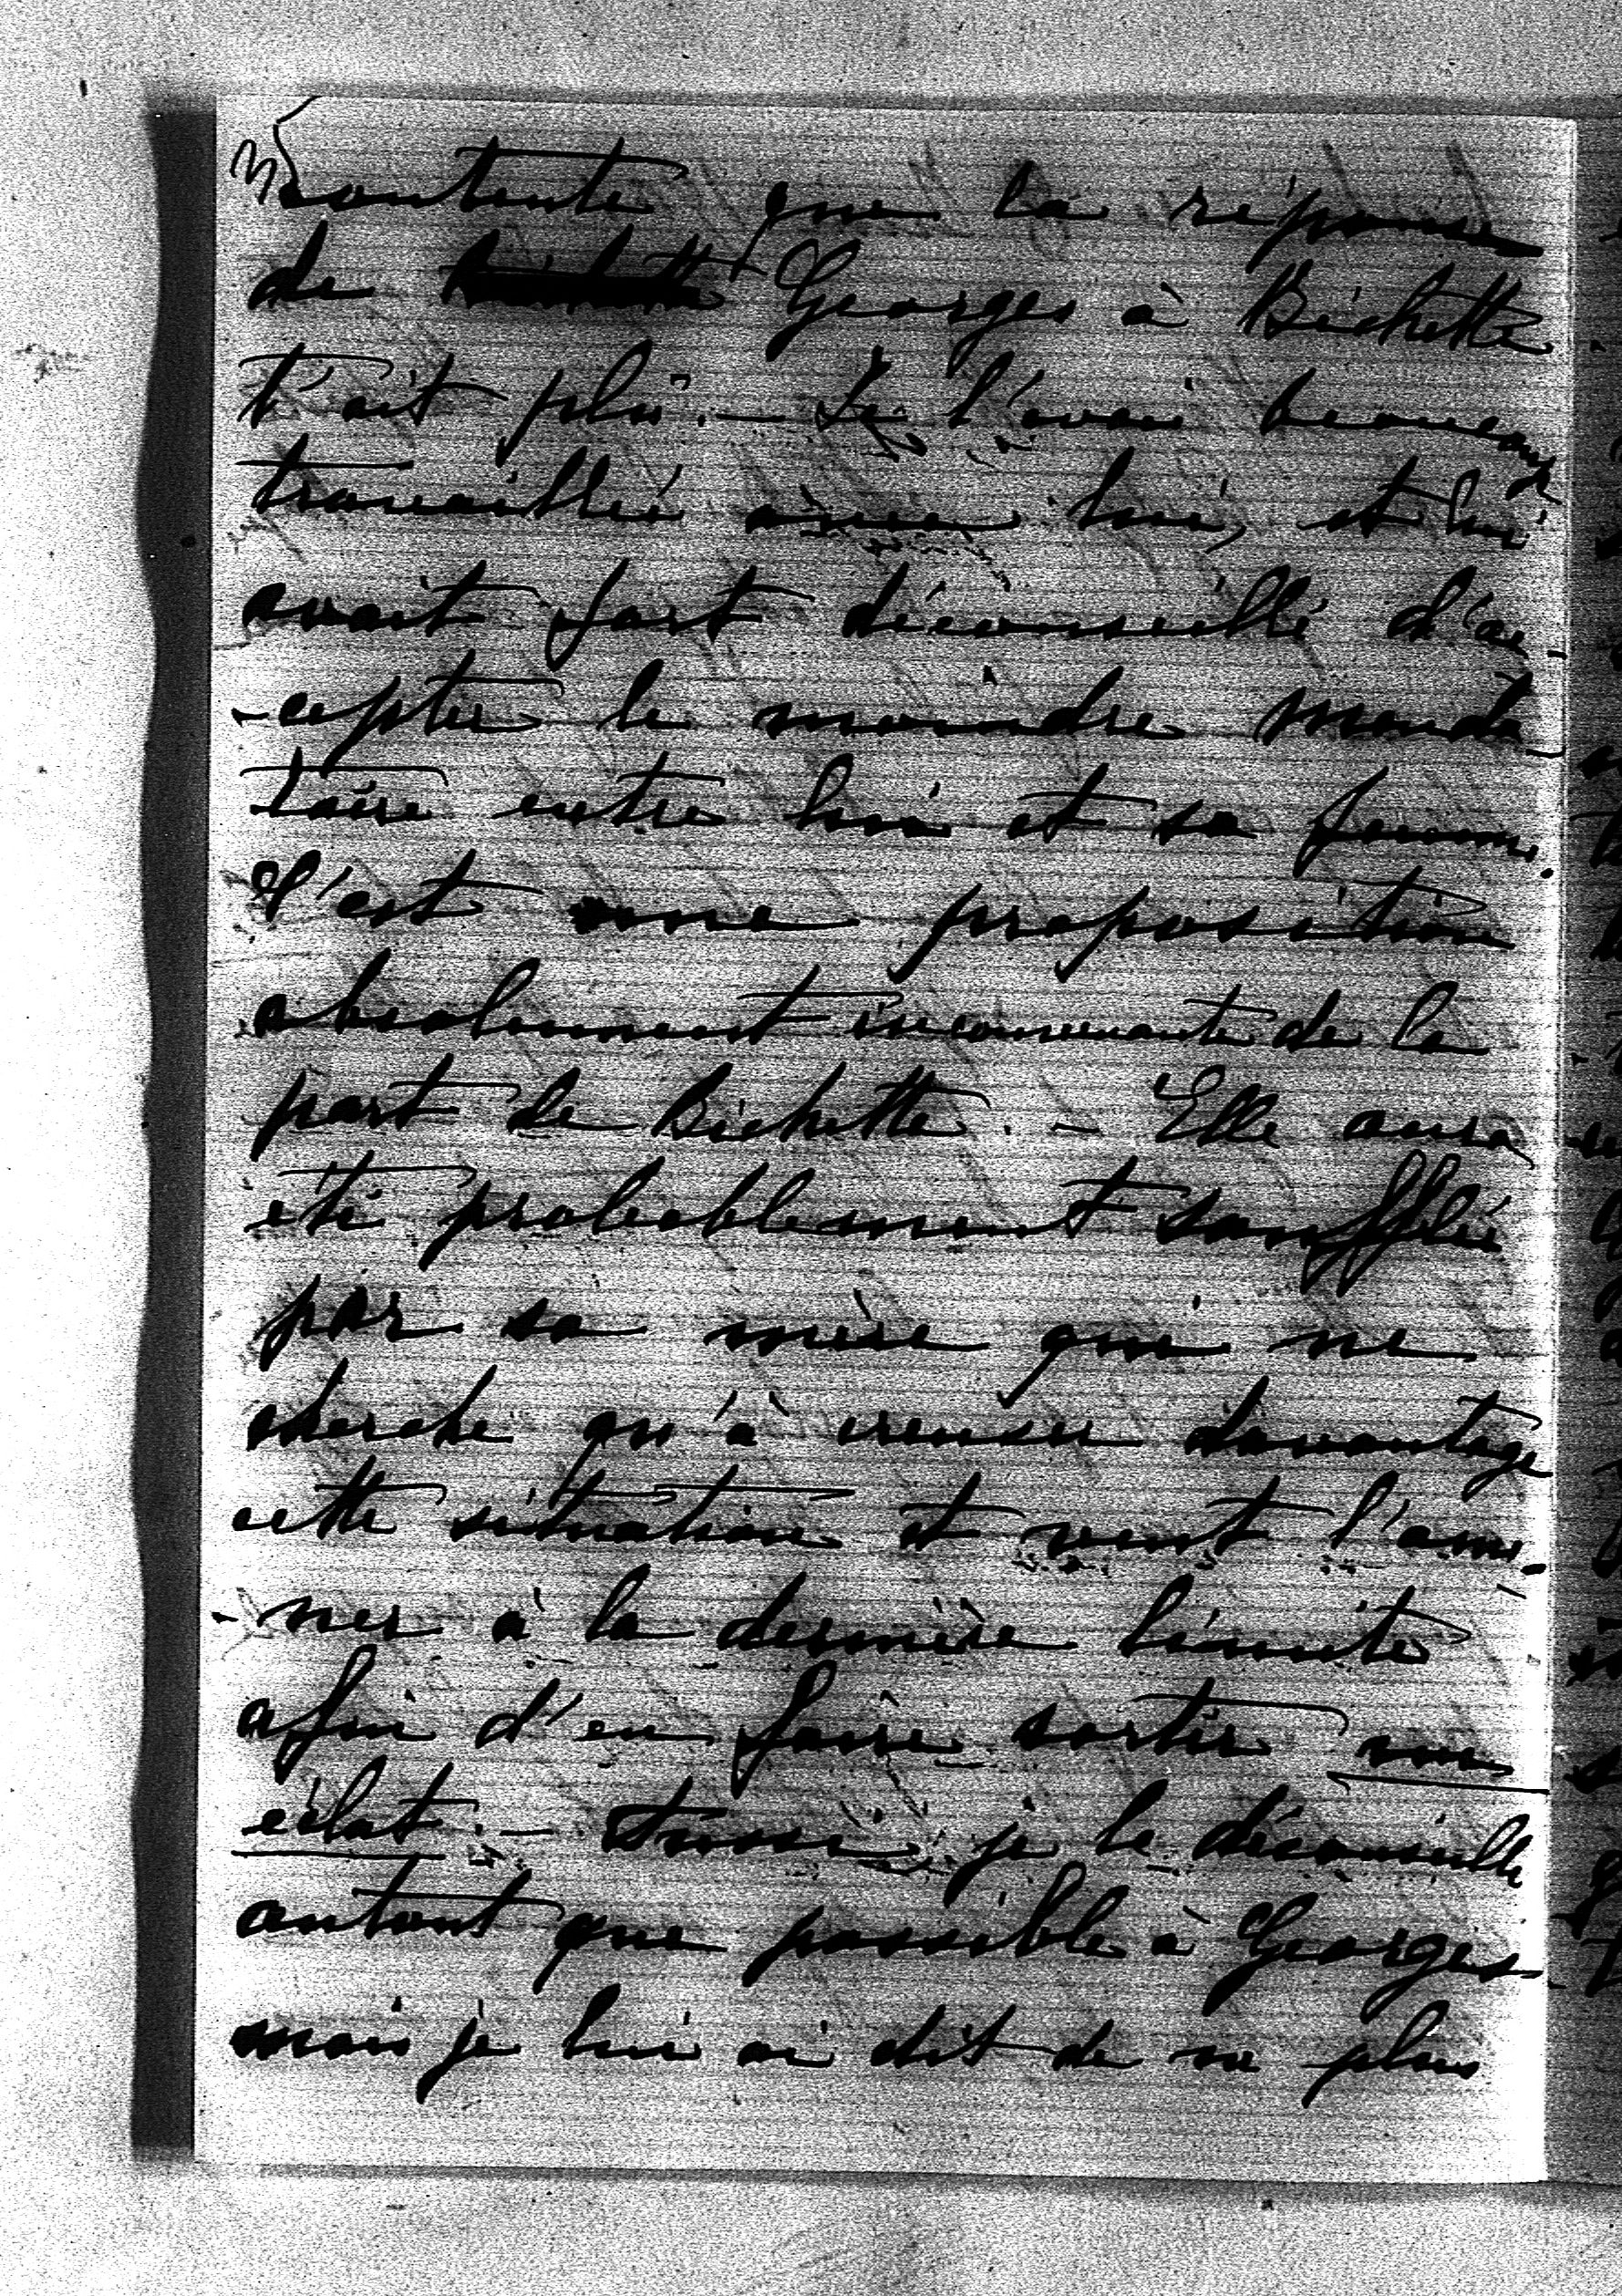 contente que la réponse
de Georges à Bichette
t'ait plu. — Je l'avais beaucoup
travaillée avec lui, et lui
avait fort déconseillé d'ac-
-cepter le moindre manda-
taire entre lui et sa femme.
C'est une proposition
absolument inconvenante de la
part de Bichette. — Elle aura
été probablement soufflée
par sa mère qui ne
cherche qu'à creuser davantage
cette situation et veut l'ame-
-ner à la dernière limite
afin d'en faire sortir un
éclat. — Aussi je le déconseille
autant que possible à Georges
mais je lui ai dit de ne plus